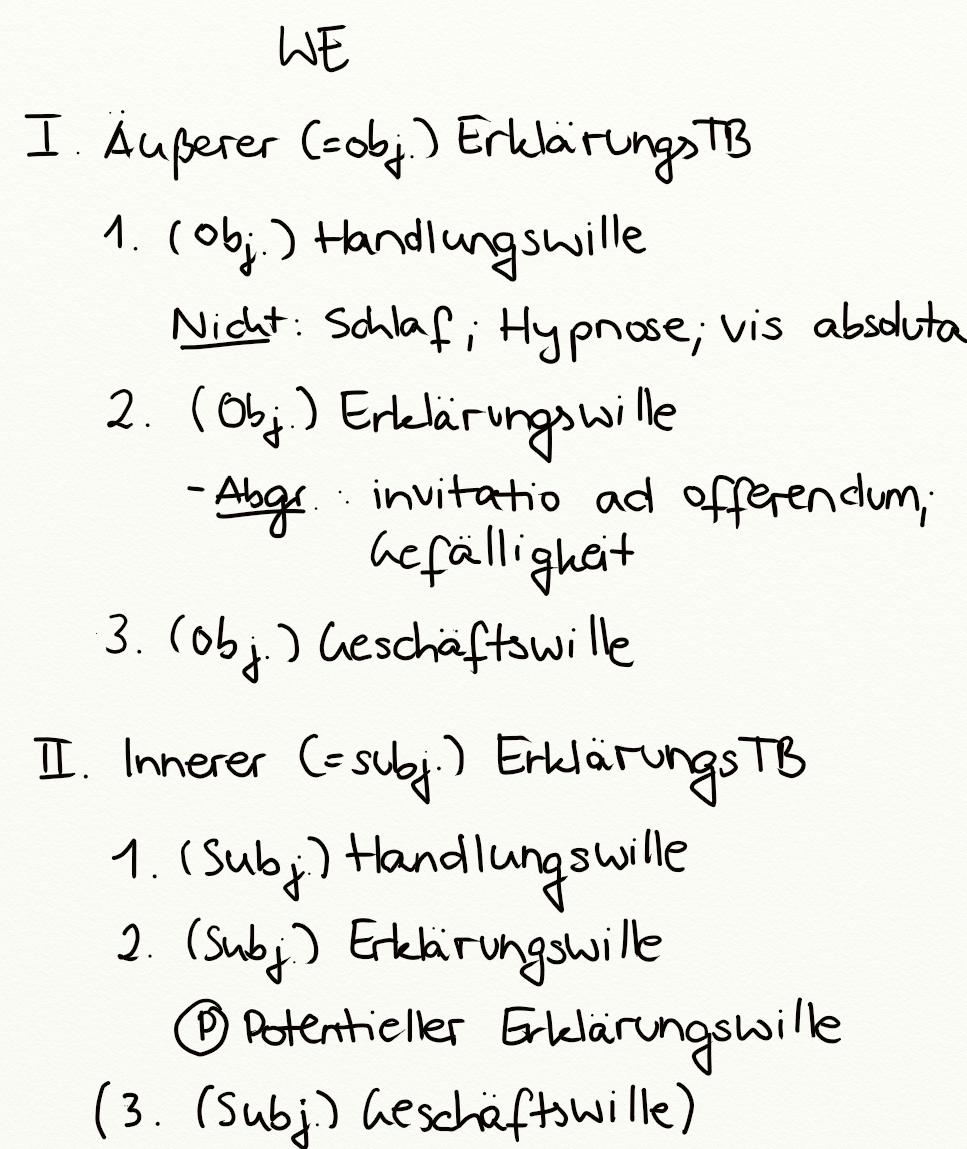 WE
I. Äußerer (=obj.) ErklärungsTB
1. (Obj.) Handlungswille
Nicht: Schlaf; Hypnose; vis absoluta
2. (Obj.) Erklärungswille
- Abgr.: invitatio ad offerendum;
Gefälligkeit
3. (Obj.) Geschäftswille
II. Innerer (=subj.) ErklärungsTB
1. (Subj.) Handlungswille
2. (Subj.) Erklärungswille
Ⓟ Potentieller Erklärungswille
(3. (Subj.) Geschäftswille)